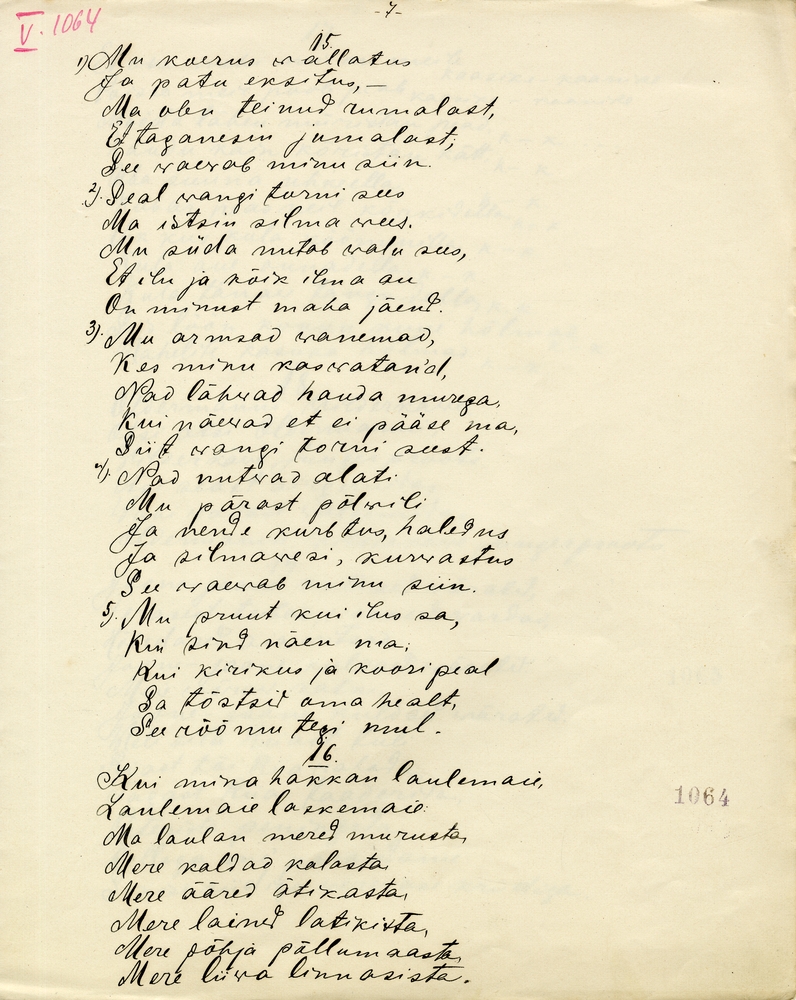 -7-
V. 1064
15.
1) Mu koerus wallatus
Ja patu eksitus,—
Ma olen teinud rumalast,
Et taganesin jumalast;
See waewab minu siin.
2). Seal wangi torni sees
Ma istsin silma wees.
Mu süda nutab walu sees,
Et ilu ja kõik ilma au
On minust maha jäend.
3). Mu armsad wanemad,
Kes minu kaswatan'd,
Nad lähwad hauda murega,
Kui näewad et ei pääse ma,
Siit wangi torni seest.
4). Nad nutwad alati
Mu pärast põlwili
Ja nende kurbtus, haledus
Ja silmawesi, kurwastus
See waewab minu siin.
5). Mu pruut kui ilus sa,
Kui sind näen ma;
Kui kirikus ja koori peal
Sa tõstsid oma healt,
See rõõmu tegi mul.
16.
Kui mina hakkan laulemaie,
Laulemaie laskemaie
Ma laulan mered murusta,
Mere kaldad kalasta,
Mere ääred ätikasta,
Mere lained latikista,
Mere põhja põllumaasta,
Mere liiwa linnasista.
1064